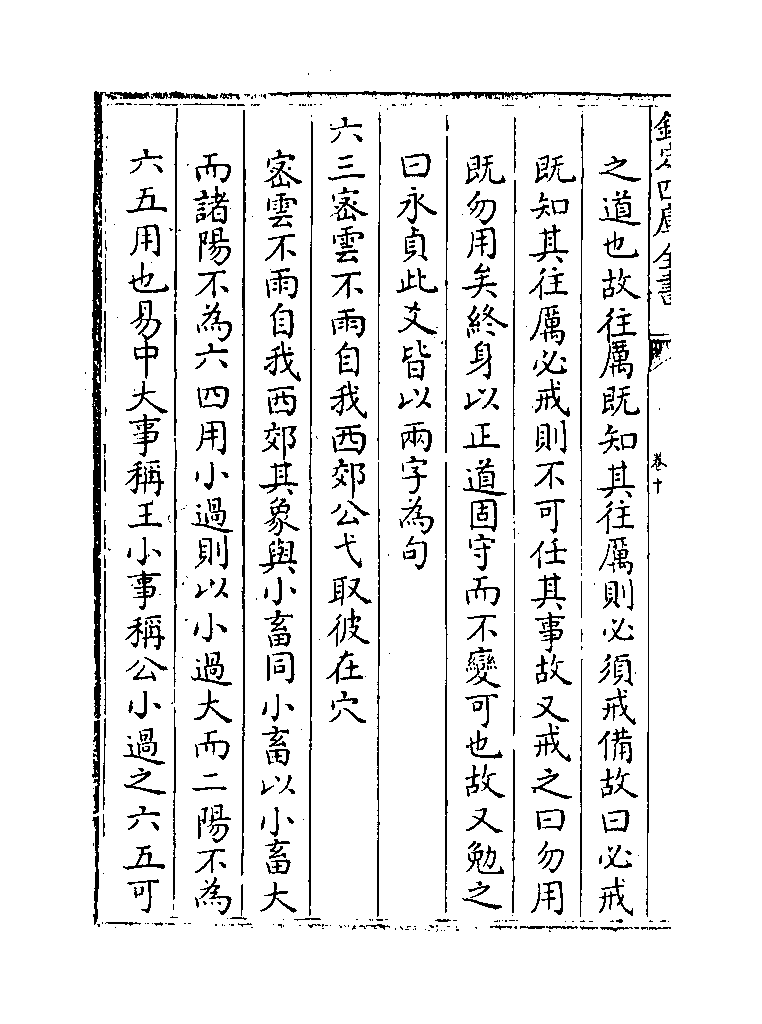 欽定四庫全書
卷十
之道也故往厲既知其往厲則必須戒備故曰必戒
既知其往厲必戒則不可任其事故又戒之曰勿用
既勿用矣終身以正道固守而不變可也故又勉之
曰永貞此爻皆以兩字為句
六三密雲不雨自我西郊公弋取彼在穴
密雲不雨自我西郊其象與小畜同小畜以小畜大
而諸陽不為六四用小過則以小過大而二陽不為
六五用也易中大事稱王小事稱公小過之六五可